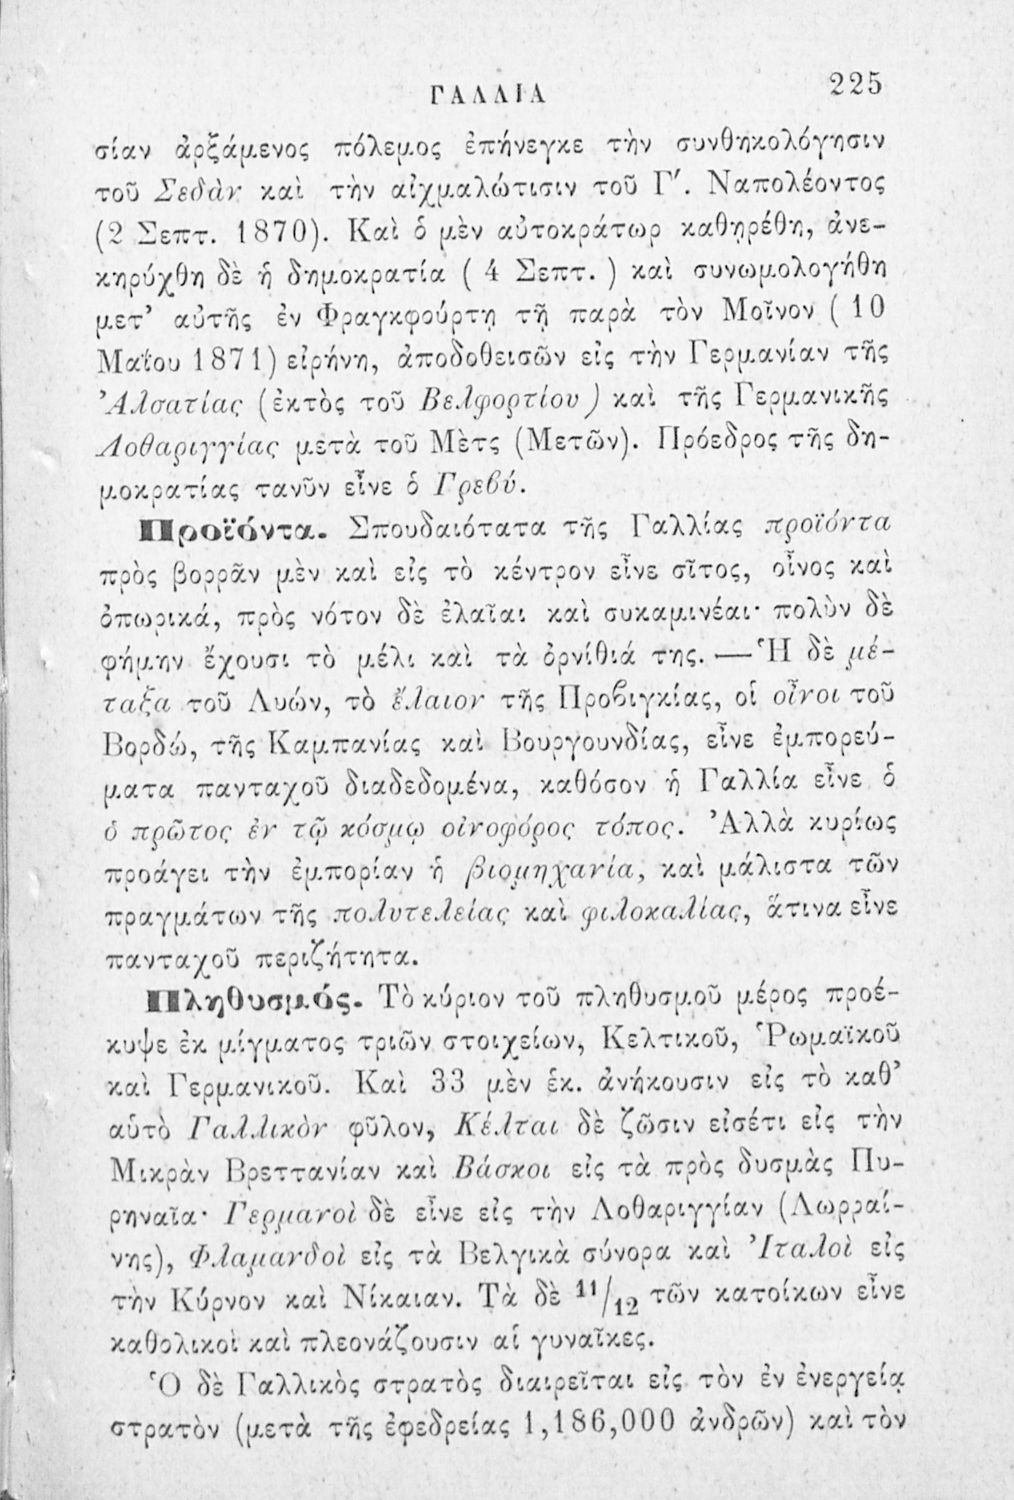 ΓΑΛΛΙΑ 225
σίαν ἀρξάμενος πόλεμος ἐπήνεγκε τὴν συνθηκολόγησιν
τοῦ Σεδὰν καὶ τὴν αἰχμαλώτισιν τοῦ Γ΄. Ναπολέοντος
(2 Σεπτ. 1870). Καὶ ὁ μὲν αὐτοκράτωρ καθῃρέθη, ἀνε-
κηρύχθη δὲ ἡ δημοκρατία ( 4 Σεπτ. ) καὶ συνωμολογήθη
μετ' αὐτῆς ἐν Φραγκφούρτῃ τῇ παρὰ τὸν Μοῖνον ( 10
Μαΐου 1871) εἰρήνη, ἀποδοθεισῶν εἰς τὴν Γερμανίαν τῆς
Ἀλσατίας (ἐκτὸς τοῦ Βελφορτίου) καὶ τῆς Γερμανικῆς
Λοθαριγγίας μετὰ τοῦ Μὲτς (Μετῶν). Πρόεδρος τῆς δη-
μοκρατίας τανῦν εἶνε ὁ Γρεβύ.
Προϊόντα. Σπουδαιότατα τῆς Γαλλίας προϊόντα
πρὸς βορρᾶν μὲν καὶ εἰς τὸ κέντρον εἶνε σῖτος, οἶνος καὶ
ὀπωρικά, πρὸς νότον δὲ ἐλαῖαι καὶ συκαμινέαι· πολὺν δὲ
φήμην ἔχουσι τὸ μέλι καὶ τὰ ὀρνίθιά της. — Ἡ δὲ μέ-
ταξα τοῦ Λυών, τὸ ἔλαιον τῆς Προβιγκίας, οἱ οἶνοι τοῦ
Βορδώ, τῆς Καμπανίας καὶ Βουργουνδίας, εἶνε ἐμπορεύ-
ματα πανταχοῦ διαδεδομένα, καθόσον ἡ Γαλλία εἶνε ὁ
ὁ πρῶτος ἐν τῷ κόσμῳ οἰνοφόρος τόπος. Ἀλλὰ κυρίως
προάγει τὴν ἐμπορίαν ἡ βιομηχανία, καὶ μάλιστα τῶν
πραγμάτων τῆς πολυτελείας καὶ φιλοκαλίας, ἅτινα εἶνε
πανταχοῦ περιζήτητα.
Πληθυσμός. Τὸ κύριον τοῦ πληθυσμοῦ μέρος προέ-
κυψε ἐκ μίγματος τριῶν στοιχείων, Κελτικοῦ, Ῥωμαϊκοῦ
καὶ Γερμανικοῦ. Καὶ 33 μὲν ἑκ. ἀνήκουσιν εἰς τὸ καθ'
αὑτὸ Γαλλικὸν φῦλον, Κέλται δὲ ζῶσιν εἰσέτι εἰς τὴν
Μικρὰν Βρεττανίαν καὶ Βάσκοι εἰς τὰ πρὸς δυσμὰς Πυ-
ρηναῖα· Γερμανοὶ δὲ εἶνε εἰς τὴν Λοθαριγγίαν (Λωρραί-
νης), Φλαμανδοὶ εἰς τὰ Βελγικὰ σύνορα καὶ Ἰταλοὶ εἰς
τὴν Κύρνον καὶ Νίκαιαν. Τὰ δὲ 11/12 τῶν κατοίκων εἶνε
καθολικοὶ καὶ πλεονάζουσιν αἱ γυναῖκες.
Ὁ δὲ Γαλλικὸς στρατὸς διαιρεῖται εἰς τὸν ἐν ἐνεργείᾳ
στρατὸν (μετὰ τῆς ἐφεδρείας 1,186,000 ἀνδρῶν) καὶ τὸν